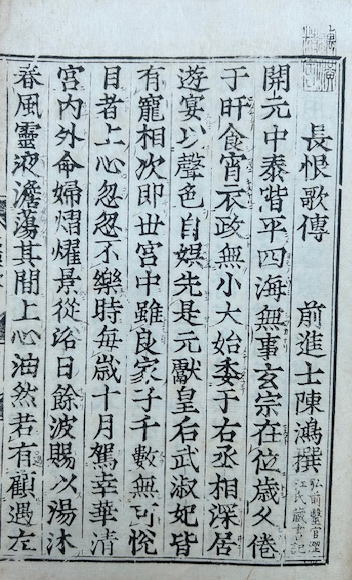 長恨歌傳　前進士陳鴻撰
弘前醫官澀
江氏藏書記
開元中泰階平四海無事玄宗在位歳久倦
于旰食宵衣政無小大始委于右丞相深居
遊宴以聲色自娯先是元獻皇后武淑妃皆
有寵相次即丗宮中雖良家子千數無可悅
目者上心忽忽不樂時毎歳十月駕幸華清
宮内外命婦熠燿景從浴日餘波賜以湯沐
春風靈液澹蕩其間上心油然若有顧遇左